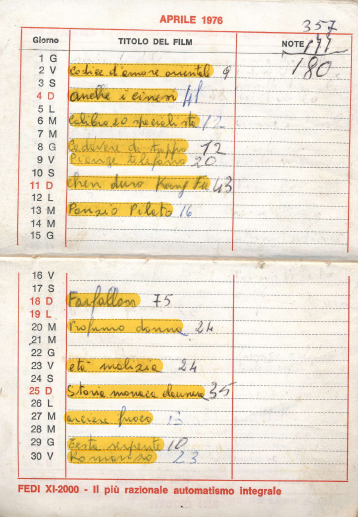 APRILE 1976
357
Giorno TITOLO DEL FILM NOTE 177
180
1 G
2 V Codice d'amore orientale 9
3 S
4 D anche i cinesi 41
5 L
6 M Calibro 20 specialista 12
7 M
8 G Cadavere da strappo 12
9 V Firenze telefono 20
10 S
11 D chen duro Kung Fu 43
12 L
13 M Ponzio Pilato 16
14 M
15 G
16 V
17 S
18 D Farfallon 75
19 L
20 M Profumo donna 24
21 M
22 G
23 V età malizia 24
24 S
25 D Storia monaca clausura 35
26 L
27 M fuoco 13
28 M
29 G Testa serpente 10
30 V 23
FEDI XI-2000 - Il più razionale automatismo integrale